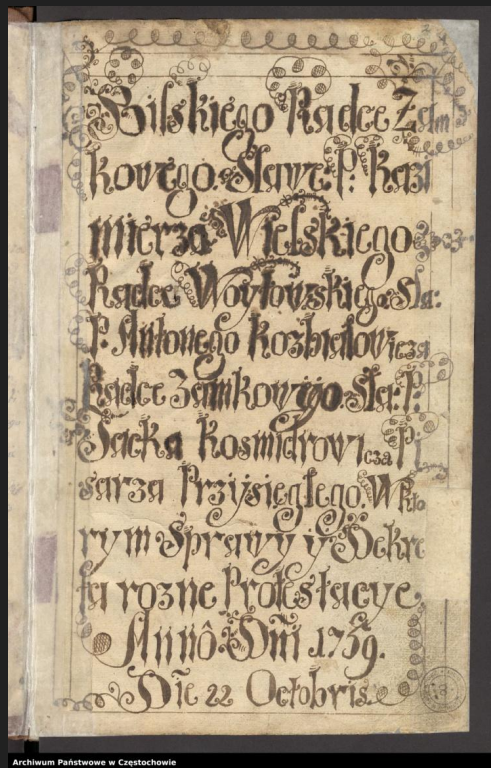 Bilskiego Radce Zam
kowego. Sławe: P: Kazi
mierza Wielskiego
Radce Woytowskiego Sla:
P. Antonego Kozbiałowicza
Radce Zamkowego. Sła: P:
Jacka Kosmidrowicza Pi
sarza Przysięgłego. W Kto
rym Sprawy y Dekre
ta rozne Protestacye
Annô Dn̄i 1759.
Die 22 Octobris.
Archiwum Państwowe w Częstochowie